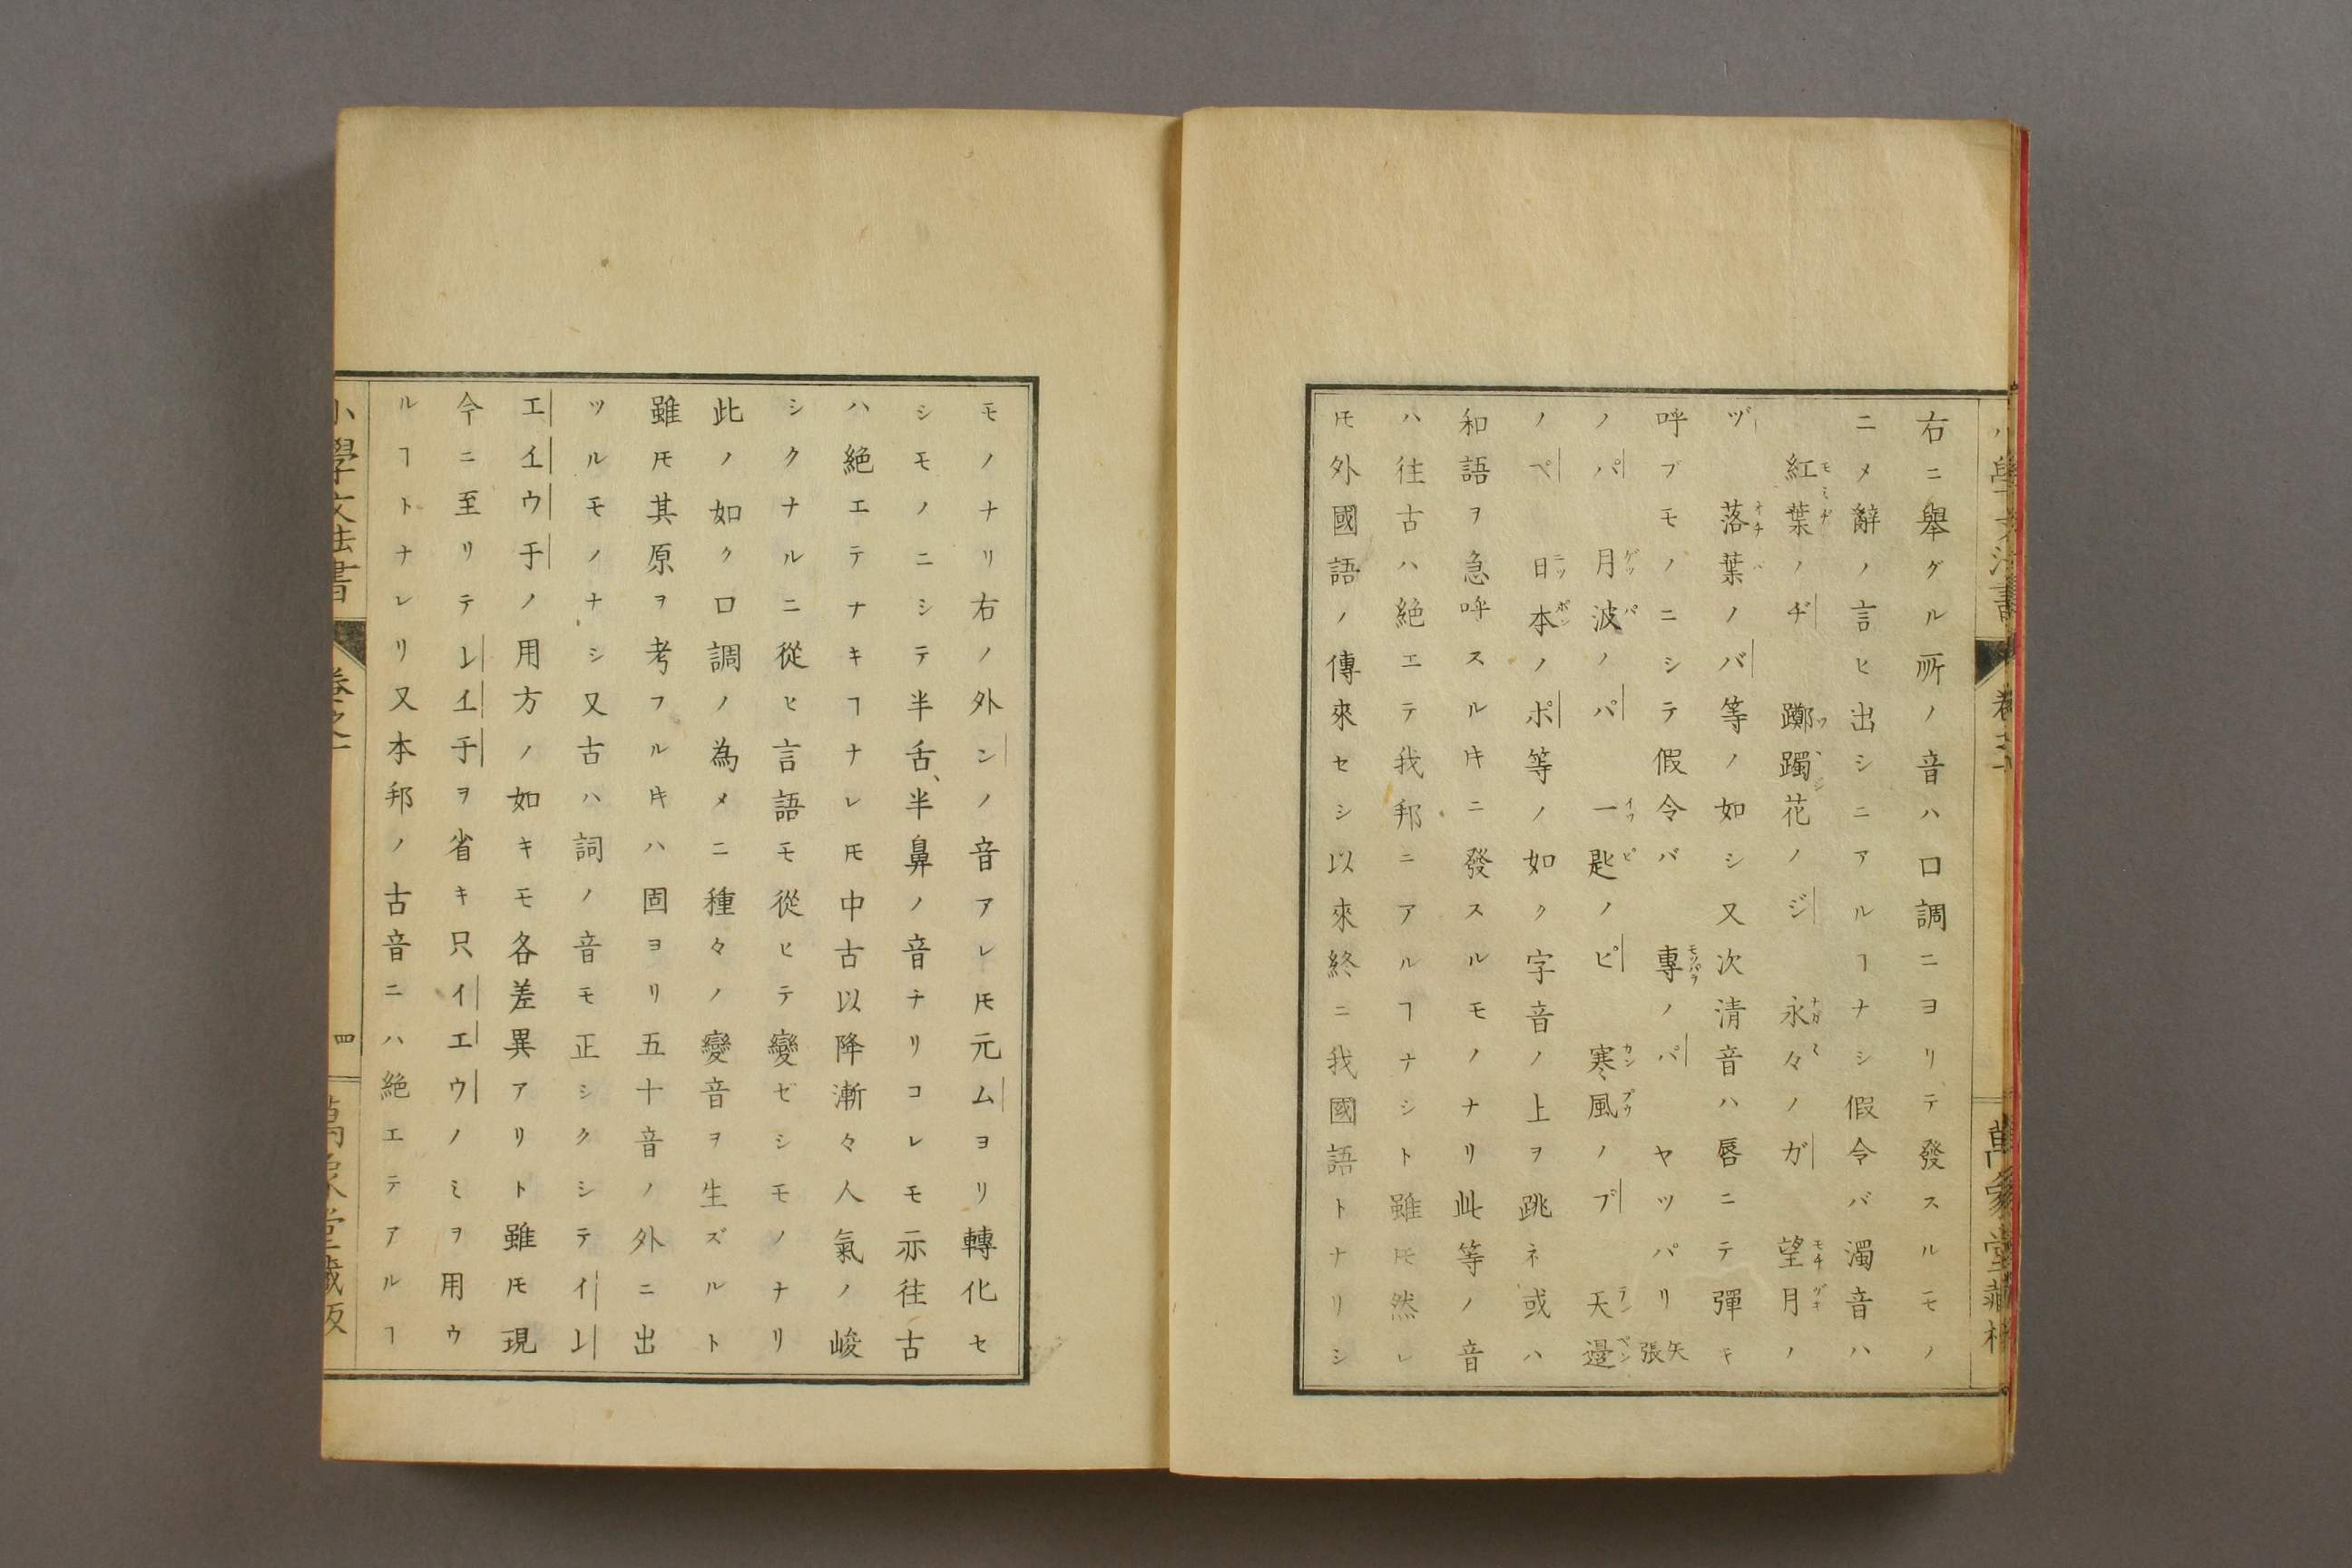 小學文法書 卷之一 萬象堂藏板
右ニ舉グル所ノ音ハ口調ニヨリテ發スルモノ
ニメ辭ノ言ヒ出シニアルヿナシ假令バ濁音ハ
モミヂ ツヽジ ナガ〱 モチヅキ
紅葉ノヂ 躑躅花ノジ 永々ノガ 望月ノ
オチバ
ヅ 落葉ノバ等ノ如シ又次清音ハ唇ニテ彈キ
モツパラ
呼ブモノニシテ假令バ 專ノパ ヤツパリ矢張
ゲツパ イツピ カンプウ テンペン
ノパ 月波ノパ 一匙ノピ 寒風ノプ 天邉
ニツポン
ノペ 日本ノポ等ノ如ク字音ノ上ヲ跳ネ或ハ
和語ヲ急呼スル𬼂ニ發スルモノナリ此等ノ音
ハ往古ハ絶エテ我邦ニアルヿナシト雖𪜈然レ
𪜈外國語ノ傳來セシ以來終ニ我國語トナリシ
モノナリ右ノ外ンノ音アレ𪜈元ムヨリ轉化セ
シモノニシテ半舌、半鼻ノ音ナリコレモ亦往古
ハ絶エテナキヿナレ𪜈中古以降漸々人氣ノ峻
シクナルニ從ヒ言語モ從ヒテ變ゼシモノナリ
此ノ如ク口調ノ為メニ種々ノ變音ヲ生ズルト
雖𪜈其原ヲ考フル𬼂ハ固ヨリ五十音ノ外ニ出
ツルモノナシ又古ハ詞ノ音モ正シクシテイ𛄠
エ𛄡ウ𛄢ノ用方ノ如キモ各差異アリト雖𪜈現
今ニ至リテ𛄠𛄡𛄢ヲ省キ只イエウノミヲ用ウ
ルヿトナレリ又本邦ノ古音ニハ絶エテアルヿ
小學文法書 卷之一 四 萬象堂藏版